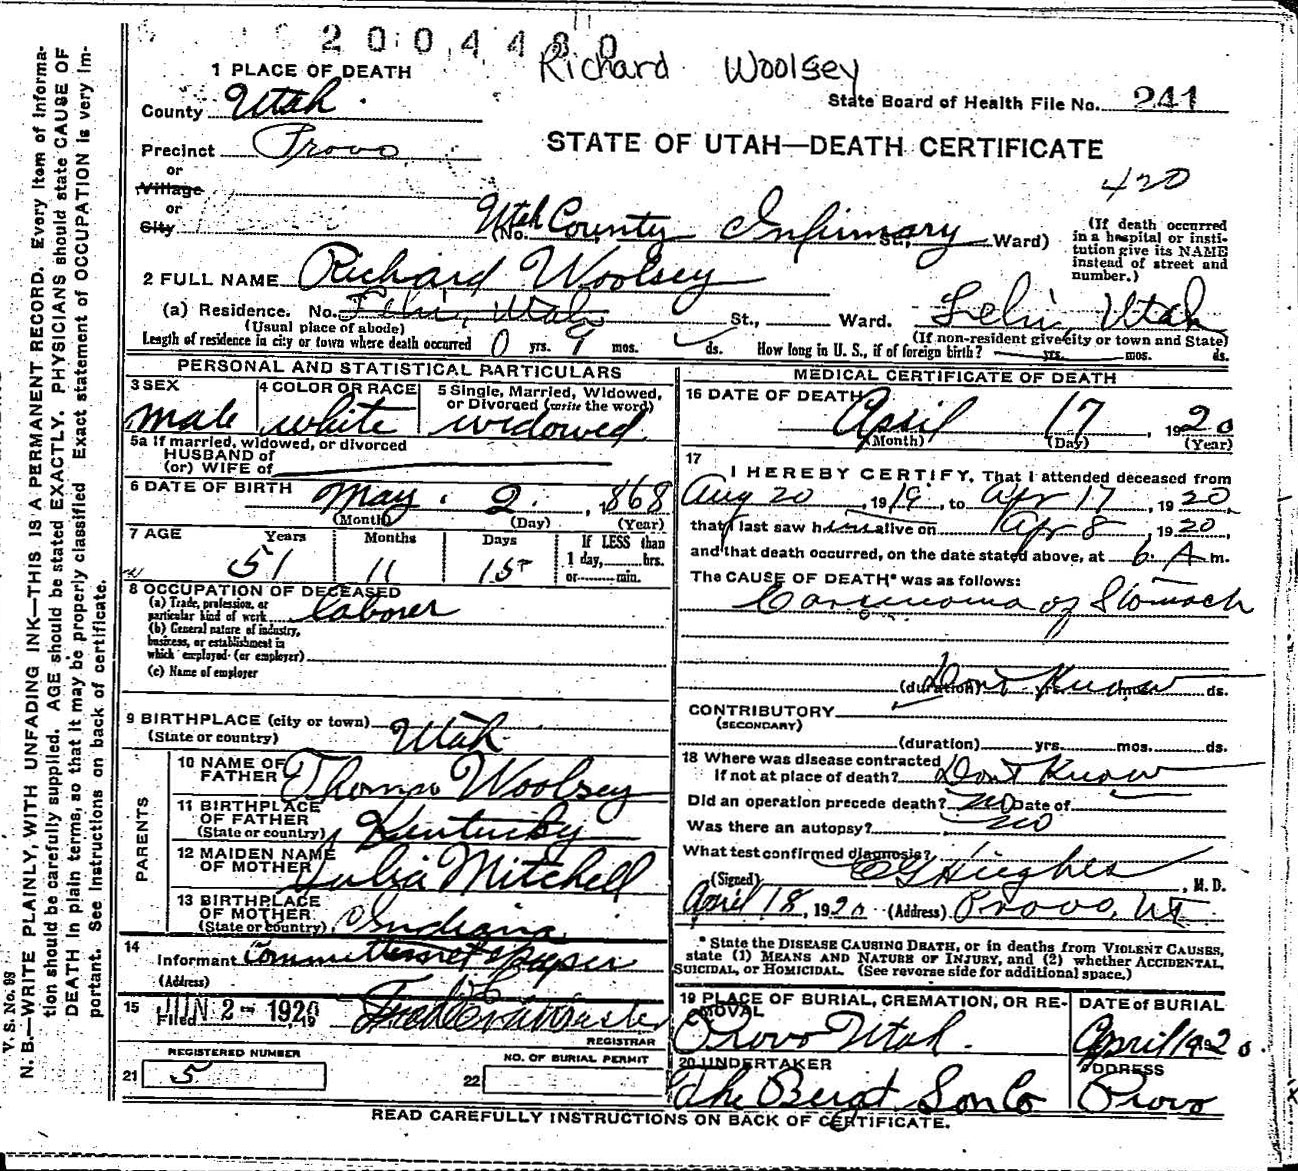 2004480
Richard Woolsey
1 PLACE OF DEATH
County Utah
State Board of Health File No. 241
Precinct Provo
STATE OF UTAH—DEATH CERTIFICATE
or
Village
420
or
City
(No. Utah County Infirmary St., Ward)
(If death occurred in a hospital or institution give its NAME instead of street and number.)
2 FULL NAME Richard Woolsey
(a) Residence. No. Lehi, Utah St., Ward. Lehi, Utah
(Usual place of abode) (If non-resident give city or town and State)
Length of residence in city or town where death occurred 0 yrs. 9 mos. ds. How long in U. S., if of foreign birth? yrs. mos. ds.
PERSONAL AND STATISTICAL PARTICULARS
3 SEX male
4 COLOR OR RACE white
5 Single, Married, Widowed, or Divorced (write the word) widowed
5a If married, widowed, or divorced
HUSBAND of
(or) WIFE of
6 DATE OF BIRTH May 2, 1868
(Month) (Day) (Year)
7 AGE Years Months Days If LESS than
51 11 15 1 day, hrs.
or min.
8 OCCUPATION OF DECEASED
(a) Trade, profession, or particular kind of work laborer
(b) General nature of industry, business, or establishment in which employed (or employer)
(c) Name of employer
9 BIRTHPLACE (city or town)
(State or country) Utah
PARENTS
10 NAME OF FATHER Thomas Woolsey
11 BIRTHPLACE OF FATHER (State or country) Kentucky
12 MAIDEN NAME OF MOTHER Julia Mitchell
13 BIRTHPLACE OF MOTHER (State or country) Indiana
14
Informant
(Address)
15 Filed JUN 2- 1920, 19
REGISTRAR
REGISTERED NUMBER
21 5
NO. OF BURIAL PERMIT
22
MEDICAL CERTIFICATE OF DEATH
16 DATE OF DEATH
April 17, 1920
(Month) (Day) (Year)
17
I HEREBY CERTIFY, That I attended deceased from
Aug 20, 1919, to Apr 17, 1920,
that I last saw him alive on Apr 8, 1920,
and that death occurred, on the date stated above, at 6 A m.
The CAUSE OF DEATH* was as follows:
Carcinoma of Stomach
(duration) Dont Know yrs. mos. ds.
CONTRIBUTORY
(SECONDARY)
(duration) yrs. mos. ds.
18 Where was disease contracted
If not at place of death? Dont Know
Did an operation precede death? no Date of
Was there an autopsy? no
What test confirmed diagnosis?
(Signed) Hughes, M. D.
April 18, 1920 (Address) Provo, Ut
* State the DISEASE CAUSING DEATH, or in deaths from VIOLENT CAUSES, state (1) MEANS AND NATURE OF INJURY, and (2) whether ACCIDENTAL, SUICIDAL, or HOMICIDAL. (See reverse side for additional space.)
19 PLACE OF BURIAL, CREMATION, OR REMOVAL
Provo Utah.
DATE of BURIAL
April 19 20
20 UNDERTAKER
The Berg & Son Co
ADDRESS
Provo
READ CAREFULLY INSTRUCTIONS ON BACK OF CERTIFICATE.
V. S. No. 98
N. B.—WRITE PLAINLY, WITH UNFADING INK—THIS IS A PERMANENT RECORD. Every item of information should be carefully supplied. AGE should be stated EXACTLY. PHYSICIANS should state CAUSE OF DEATH in plain terms, so that it may be properly classified. Exact statement of OCCUPATION is very important. See instructions on back of certificate.